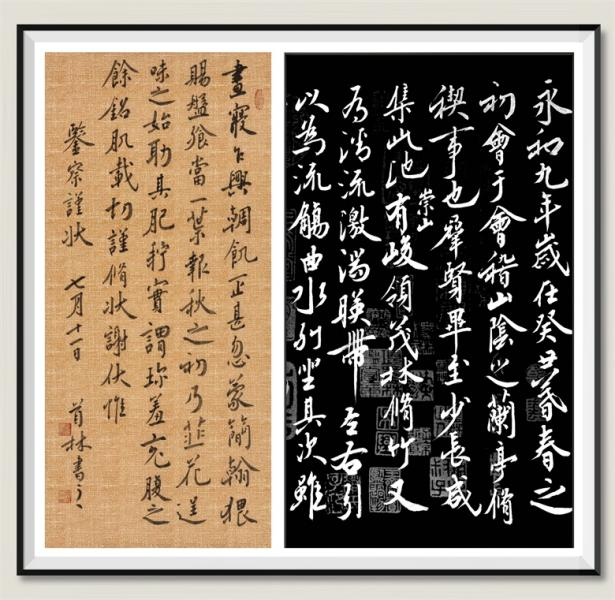 永和九年歲在癸丑暮春之
初會于會稽山陰之蘭亭脩
禊事也羣賢畢至少長咸
集此地有崇山峻領茂林脩竹又
有清流激湍暎帶左右引
以為流觴曲水列坐其次雖
晝寢乍興輖飢正甚忽蒙簡翰猥
賜盤飧當一葉報秋之初乃韭花逞
味之始助其肥羜實謂珍羞充腹之
餘銘肌載切謹脩狀謝伏惟
鑒察謹狀 七月十一日 林書之